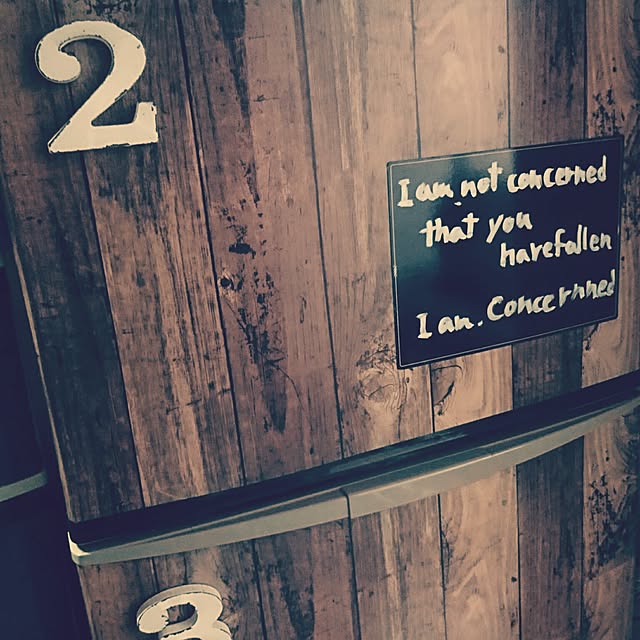 2
I am not concerned
that you
havefallen
I am. Concernned
3